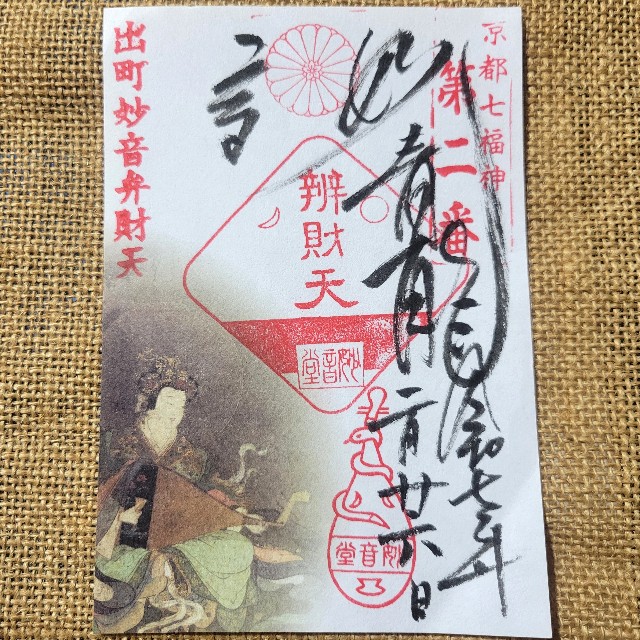 京都七福神
第二番
令和七年
二月廿六日
辨財天
妙音堂
妙音堂
出町妙音弁財天